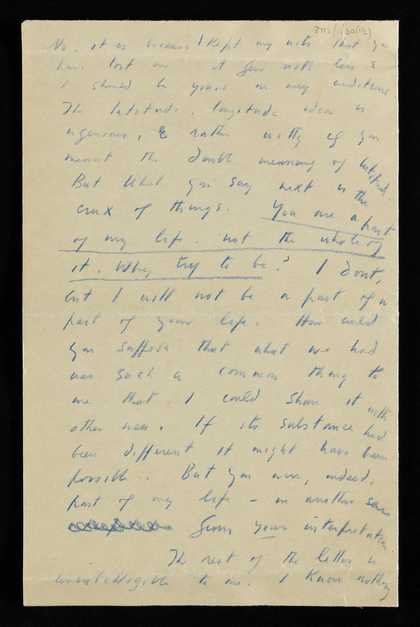 No, it is because I kept my wits that you
have lost me. it goes with less &
I should be yours on any
The latitude, longitude idea is
ingenious, & rather witty if you
meant the double meaning of latitude.
But what you say next is the
crux of things. You are a part
of my life. not the whole of
it. Why try to be? I dont,
but I will not be a part of a
part of your life. How could
you suppose that what we had
was such a common thing to
me that I could share it with
other men. If its substance had
been different it might have been
possible. But you were, indeed,
part of my life – in another sense
from your interpretation.
The rest of the letter is
unintelligible to me. I know nothing